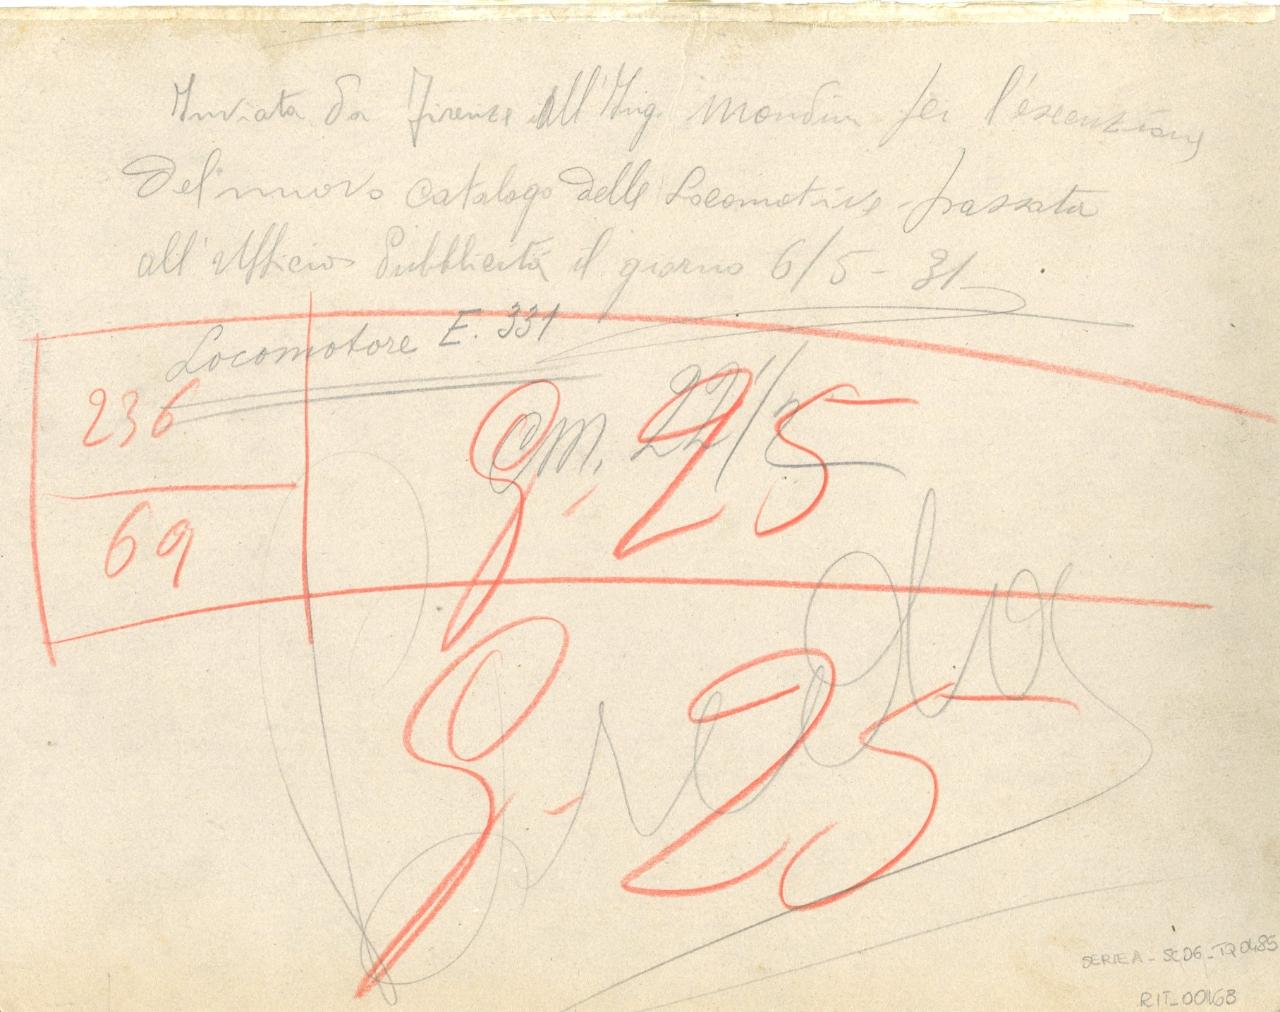 Inviata da Firenze all'Ing. Mondini per l'esecuzione
del nuovo catalogo delle Locomotive passata
all'Ufficio Pubblicità il giorno 6/5-31
Locomotore E. 331
236
69
cm. 22/
9-25
9-25
SERIE A - SC06 - TQ0485
RIT_00168